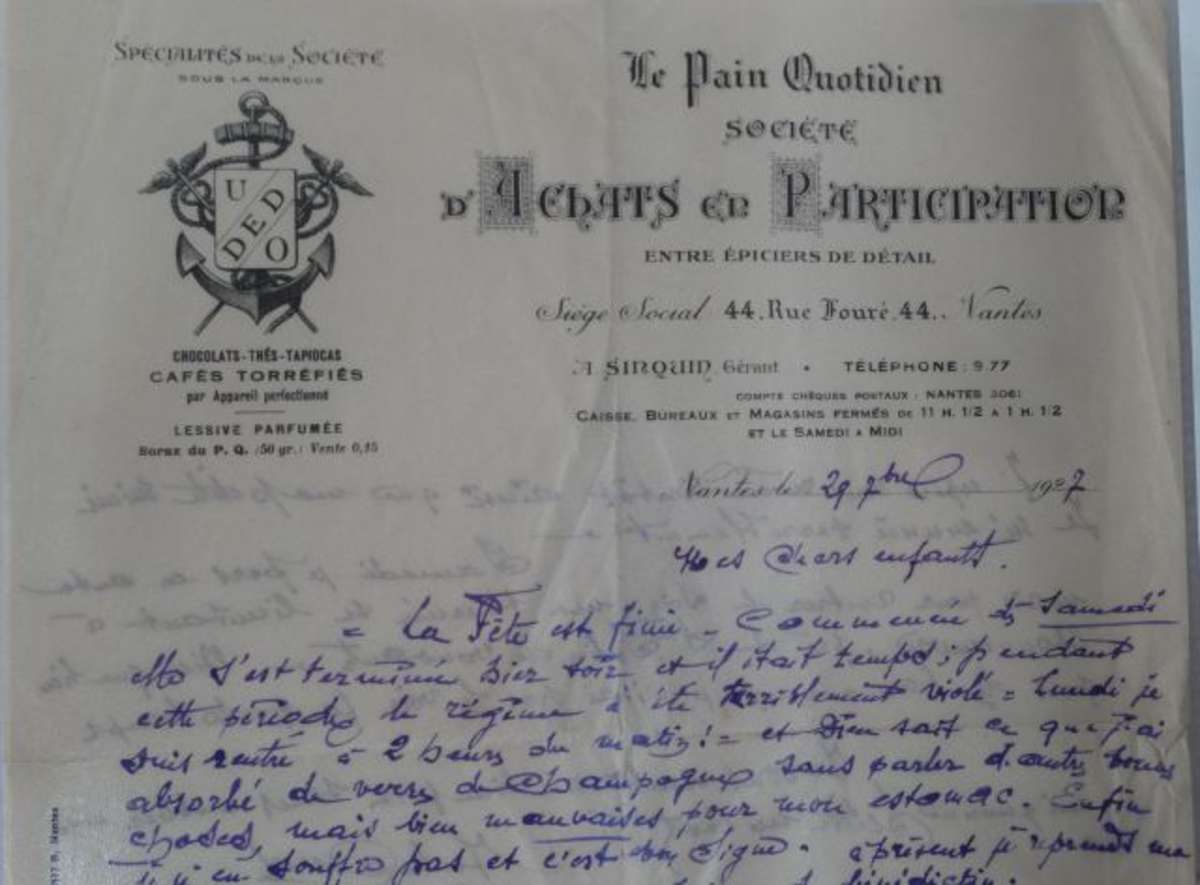 SPÉCIALITÉS DE LA SOCIÉTÉ
SOUS LA MARQUE
U
DED
O
CHOCOLATS-THÉS-TAPIOCAS
CAFÉS TORRÉFIÉS
par Appareil perfectionné
LESSIVE PARFUMÉE
Borax du P. Q. (50 gr.) Vente 0,15
Le Pain Quotidien
SOCIÉTÉ
D'ACHATS EN PARTICIPATION
ENTRE ÉPICIERS DE DÉTAIL
Siège Social 44, Rue Fouré, 44, Nantes
A SINQUIN, Gérant • TÉLÉPHONE : 9.77
COMPTE CHÈQUES POSTAUX : NANTES 3061
CAISSE, BUREAUX ET MAGASINS FERMÉS DE 11 H. 1/2 A 1 H. 1/2
ET LE SAMEDI A MIDI
Nantes le 29 7bre 1927
Mes Chers enfants.
= La Fête est finie - Commencée Samedi
elle s'est terminée hier soir et il était temps ; pendant
cette période le régime a été terriblement violé = Lundi je
suis rentré à 2 heures du matin ! = et Dieu sait ce que j'ai
absorbé de verres de Champagne sans parler d'autres bonnes
choses, mais bien mauvaises pour mon estomac. Enfin
je n'en souffre pas et c'est bon signe. à présent je reprends ma
Nantes